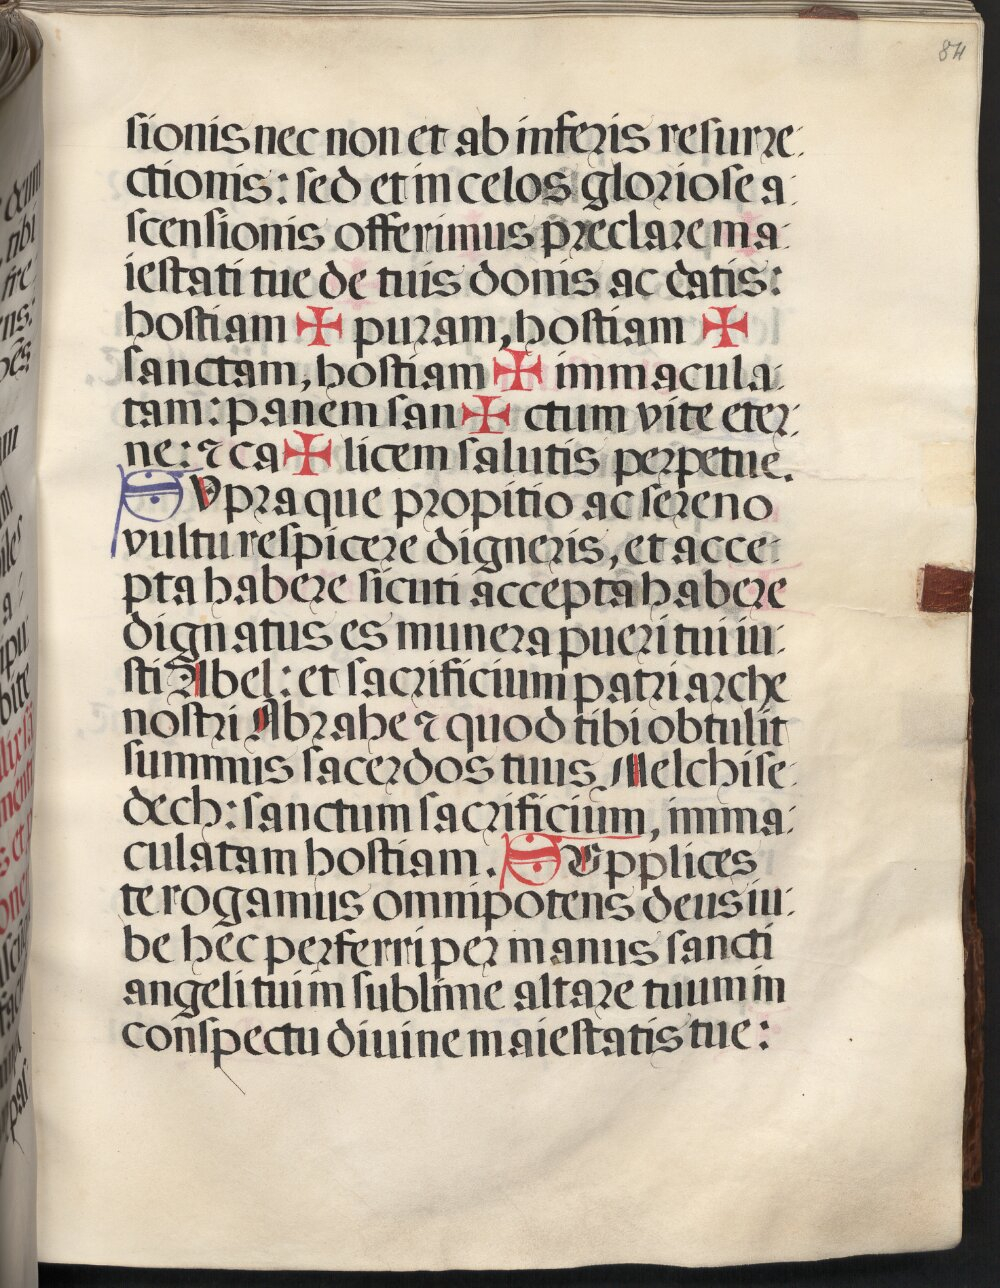 84
sionis nec non et ab inferis resurre-
ctionis: sed et in celos gloriose a-
scensionis offerimus preclare ma-
iestati tue de tuis donis ac datis:
hostiam ✠ puram, hostiam ✠
sanctam, hostiam ✠ immacula-
tam: panem san✠ctum vite eter-
ne: ⁊ ca✠licem salutis perpetue.
SVpra que propitio ac sereno
vultu respicere digneris, et acce-
pta habere sicuti accepta habere
dignatus es munera pueri tui iu-
sti Abel: et sacrificium patriarche
nostri Abrahe ⁊ quod tibi obtulit
summus sacerdos tuus Melchise-
dech: sanctum sacrificium, imma-
culatam hostiam. SVpplices
te rogamus omnipotens deus iu-
be hec perferri per manus sancti
angeli tui in sublime altare tuum in
conspectu diuine maiestatis tue: